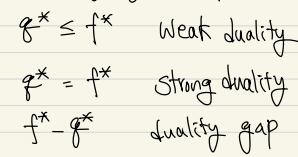 q* ≤ f* Weak duality
q* = f* Strong duality
f* - q* duality gap